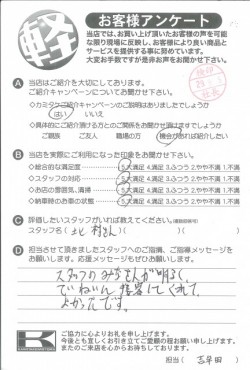 軽
お客様アンケート
当店では、お買い上げ頂いたお客様の声を可能
な限り現場に反映し、お客様により良い商品と
サービスを提供する事に努めています。
大変お手数ですが是非お声をお聞かせ下さい。
A 当店はご紹介を大切にしております。
ご紹介キャンペーンについてお聞かせ下さい。
◇カミタケご紹介キャンペーンのご説明はありましたでしょうか
はい いいえ
◇具体的にご紹介頂ける方とのご関係をお聞かせ頂けますでしょうか
ご親族 ご友人 職場の方
B 当店を実際にご利用になった印象をお聞かせ下さい。
◇総合的な満足度 5.大満足 4.満足 3.ふつう 2.やや不満 1.不満
◇スタッフの対応 5.大満足 4.満足 3.ふつう 2.やや不満 1.不満
◇お店の雰囲気、清掃 5.大満足 4.満足 3.ふつう 2.やや不満 1.不満
◇納車時のお車の状態 5.大満足 4.満足 3.ふつう 2.やや不満 1.不満
C 評価したいスタッフがいれば教えてください。(複数回答可)
スタッフ名( 北村さん )
D 担当させて頂きましたスタッフへのご指摘、ご指導メッセージをお
願いします。応援メッセージもぜひお願いします。
スタッフのみなさんが明るく
ていねいに接客してくれて
よかったです。
K
ご協力に心よりお礼を申し上げます。
今後とも宜しくお引き立てご愛顧の程お願い申し上げます。
またのご来店を心からお待ちしております。
担当( 五早田 )